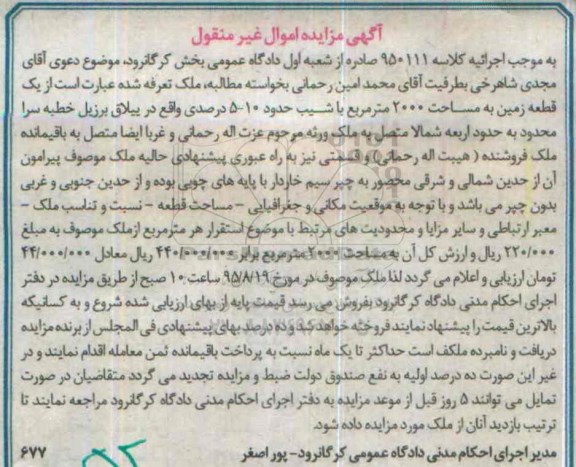 آگهی مزایده اموال غیر منقول
به موجب اجرائیه کلاسه ۹۵۰۱۱۱ صادره از شعبه اول دادگاه عمومی بخش کرگانرود، موضوع دعوی آقای
مجدی شاهرخی بطرفیت آقای محمد امین رحمانی بخواسته مطالبه، ملک تعرفه شده عبارت است از یک
قطعه زمین به مساحت ۲۰۰۰ مترمربع با شیب حدود ۱۰-۵ درصدی واقع در ییلاق برزیل خطبه سرا
محدود به حدود اربعه شمالا متصل به ملک ورثه مرحوم عزت اله رحمانی و غربا ایضا متصل به باقیمانده
ملک فروشنده ( هیبت اله رحمانی) و قسمتی نیز به راه عبوری پیشنهادی حالیه ملک موصوف پیرامون
آن از حدین شمالی و شرقی محصور به چپر سیم خاردار با پایه های چوبی بوده و از حدین جنوبی و غربی
بدون چپر می باشد و با توجه به موقعیت مکانی و جغرافیایی - مساحت قطعه - نسبت و تناسب ملک -
معبر ارتباطی و سایر مزایا و محدودیت های مرتبط با موضوع استقرار هر مترمربع ازملک موصوف به مبلغ
۲۲۰/۰۰۰ ریال و ارزش کل آن به مساحت ۲۰۰۰ مترمربع برابر ۴۴۰/۰۰۰/۰۰۰ ریال معادل ۴۴/۰۰۰/۰۰۰
تومان ارزیابی و اعلام می گردد لذا ملک موصوف در مورخ ۹۵/۸/۱۹ ساعت ۱۰ صبح از طریق مزایده در دفتر
اجرای احکام مدنی دادگاه کرگانرود بفروش می رسد قیمت پایه از بهای ارزیابی شده شروع و به کسانیکه
بالاترین قیمت را پیشنهاد نمایند فروخته خواهد شد و ده درصد بهای پیشنهادی فی المجلس از برنده مزایده
دریافت و نامبرده ملکف است حداکثر تا یک ماه نسبت به پرداخت باقیمانده ثمن معامله اقدام نمایند و در
غیر این صورت ده درصد اولیه به نفع صندوق دولت ضبط و مزایده تجدید می گردد متقاضیان در صورت
تمایل می توانند ۵ روز قبل از موعد مزایده به دفتر اجرای احکام مدنی دادگاه کرگانرود مراجعه نمایند تا
ترتیب بازدید آنان از ملک مورد مزایده داده شود.
مدیر اجرای احکام مدنی دادگاه عمومی کرگانرود- پور اصغر ۶۷۷